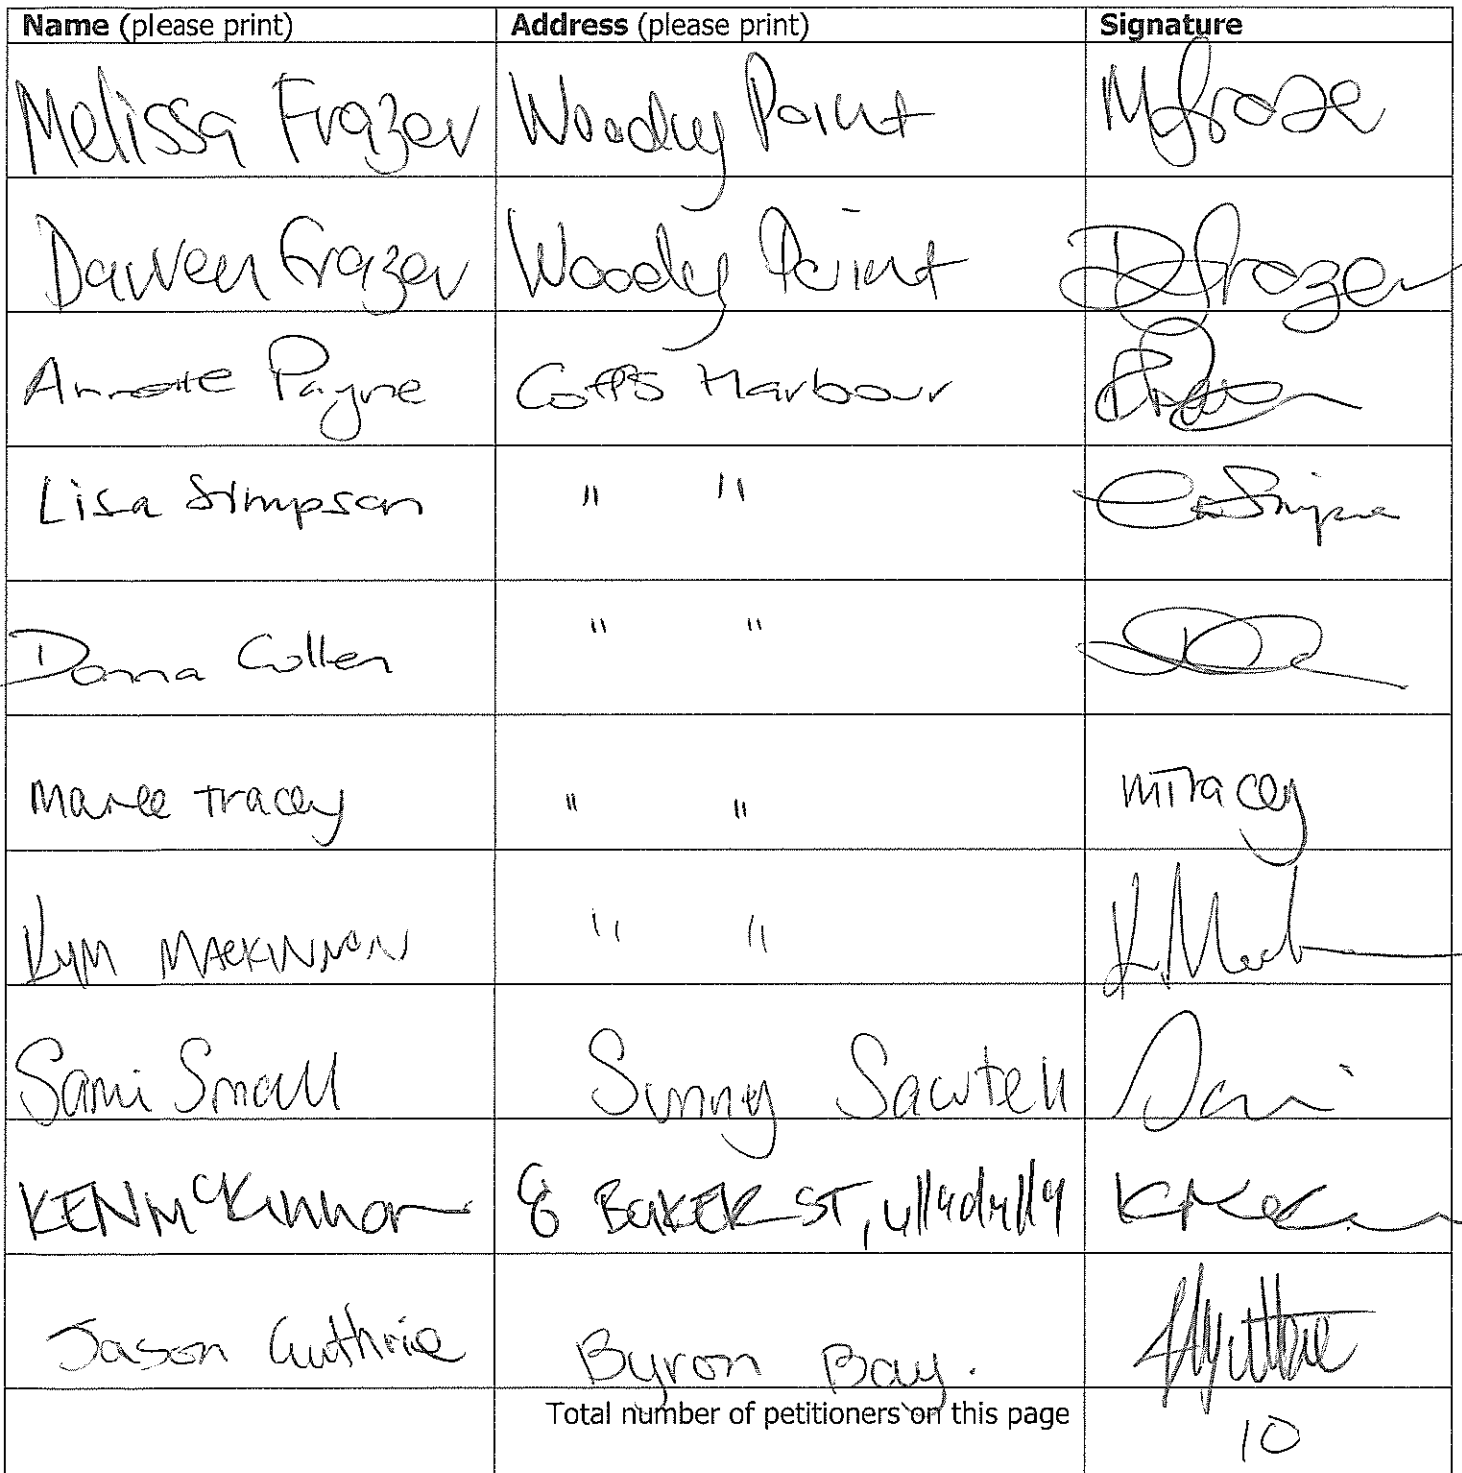 Name (please print) Address (please print) Signature
Melissa Frazer Woody Point MFraze
Darren Frazer Woody Point DFrazer
Annette Payne Coffs Harbour
Lisa Simpson " "
Donna Cullen " "
Maree Tracey " " MTracey
Kym MACKINNON " " K.Mack
Sami Small Sunny Sawtell Sami
KEN McKinnon 8 BAKER ST, Ulladulla
Jason Guthrie Byron Bay. JGuthrie
Total number of petitioners on this page
10